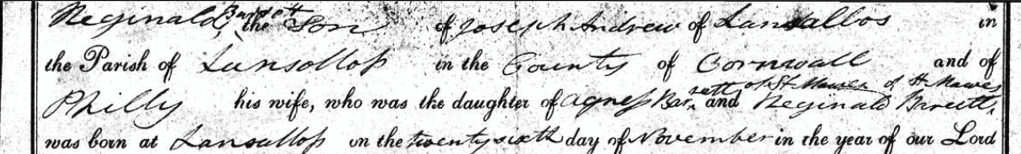 Reginald Barrett the Son of Joseph Andrew of Lansallos in
the Parish of Lansallos in the County of Cornwall and of
Philly his wife, who was the daughter of Agness Barrett of St Mawes and Reginald Barrett of St Mawes,
was born at Lansallos on the twenty sixth day of November in the year of our Lord